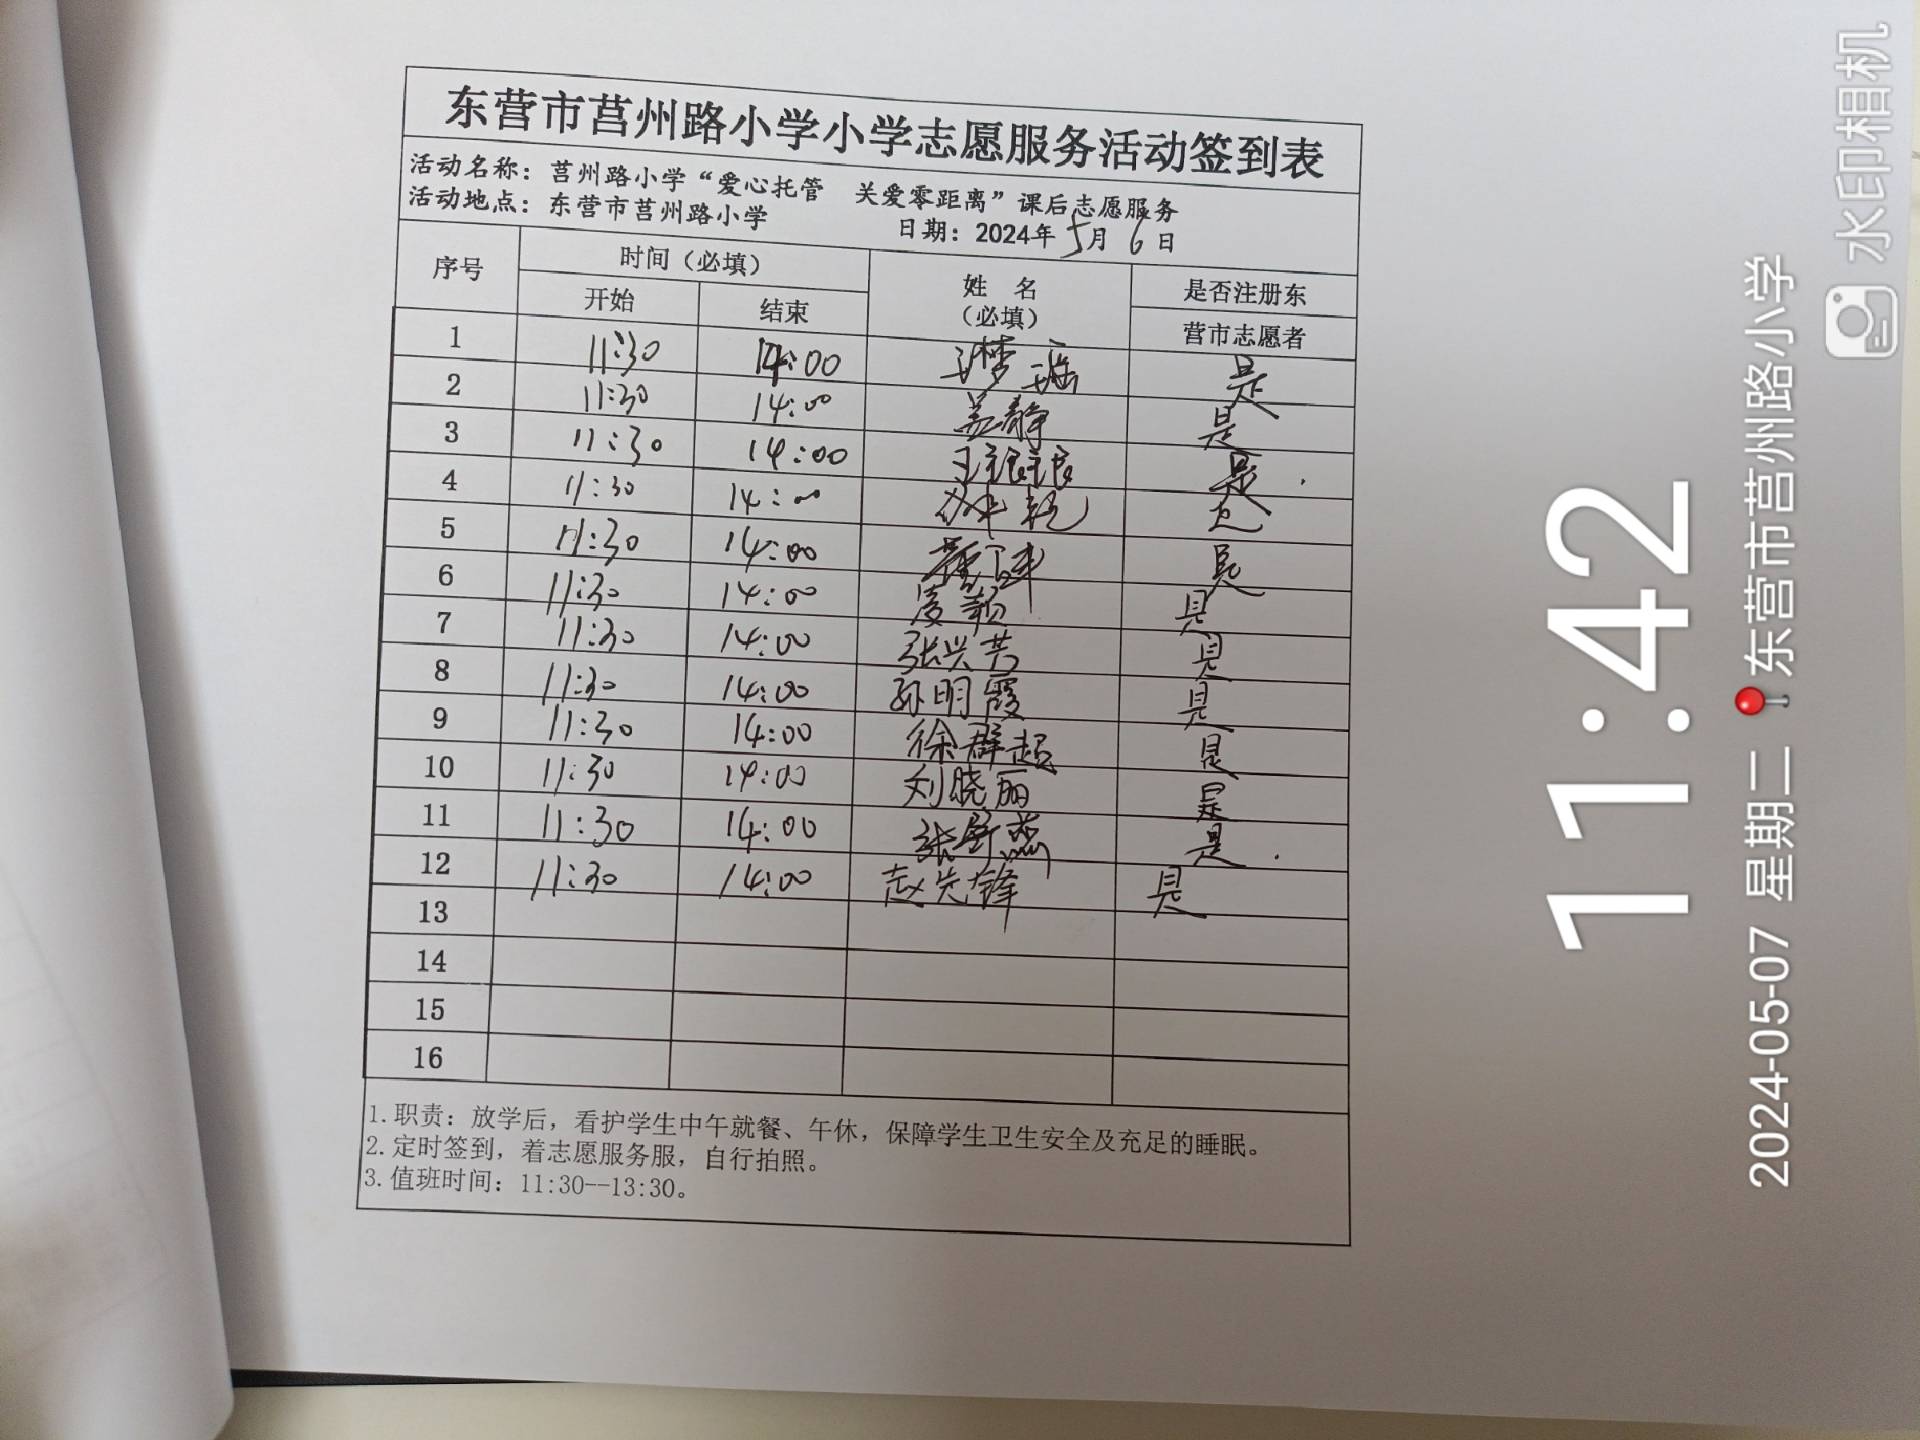 东营市莒州路小学小学志愿服务活动签到表
活动名称：莒州路小学“爱心托管　关爱零距离”课后志愿服务
活动地点：东营市莒州路小学　日期：2024年5月6日
序号 时间（必填） 姓 名（必填） 是否注册东营市志愿者
开始 结束
1 11:30 14:00 梦瑶 是
2 11:30 14:00 盖静 是
3 11:30 14:00 王 是
4 11:30 14:00 是
5 11:30 14:00 是
6 11:30 14:00 是
7 11:30 14:00 张兴芳 是
8 11:30 14:00 孙明霞 是
9 11:30 14:00 徐群超 是
10 11:30 14:00 刘晓丽 是
11 11:30 14:00 张 燕 是
12 11:30 14:00 赵先锋 是
13
14
15
16
1.职责：放学后，看护学生中午就餐、午休，保障学生卫生安全及充足的睡眠。
2.定时签到，着志愿服务服，自行拍照。
3.值班时间：11:30--13:30。
11:42
2024-05-07 星期二 东营市莒州路小学
水印相机